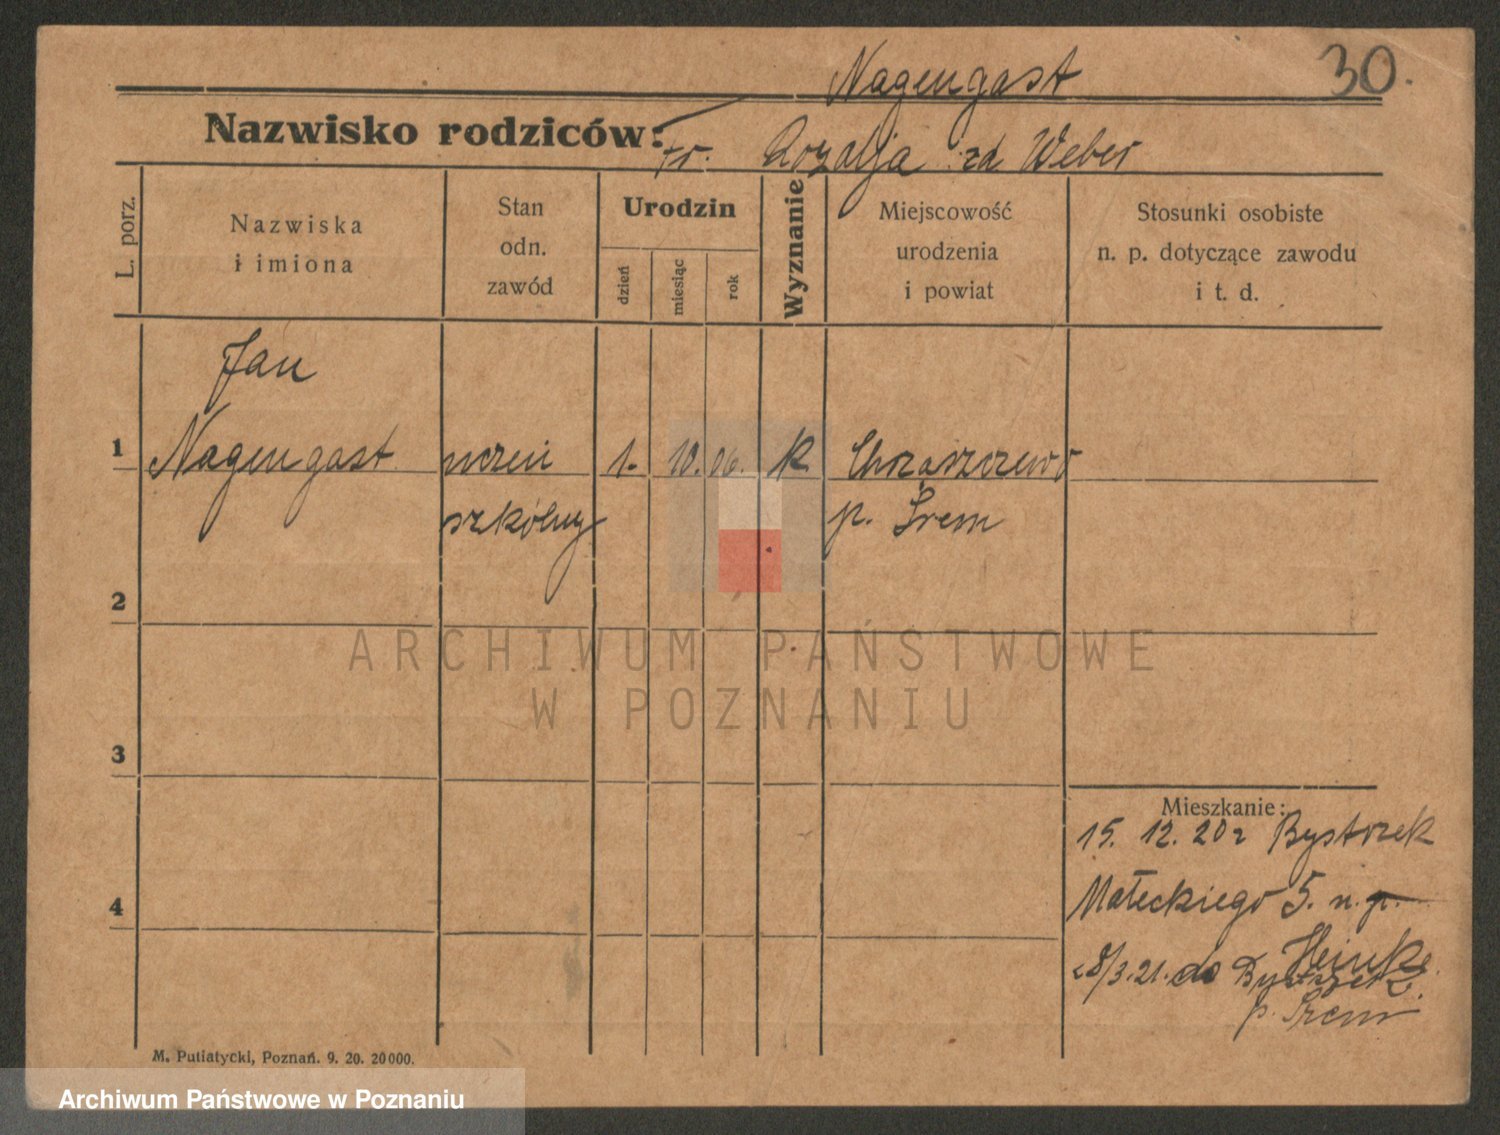 Nagengast 30.
Nazwisko rodziców: Fr. Rozalja zd Weber
L. porz.
Nazwiska
i imiona
Stan
odn.
zawód
Urodzin
dzień
miesiąc
rok
Wyznanie
Miejscowość
urodzenia
i powiat
Stosunki osobiste
n. p. dotyczące zawodu
i t. d.
Jan
1 Nagengast uczeń 1. 10. 06. k Chrząszczewo
szkólny p. Śrem
2
ARCHIWUM PAŃSTWOWE
W POZNANIU
3
Mieszkanie:
15. 12. 20 r Bystrzek
4 Małeckiego 5. n. p.
Heinke
8/3.21. do Bystrzek
p. Śrem
M. Putiatycki, Poznań. 9. 20. 20 000.
Archiwum Państwowe w Poznaniu